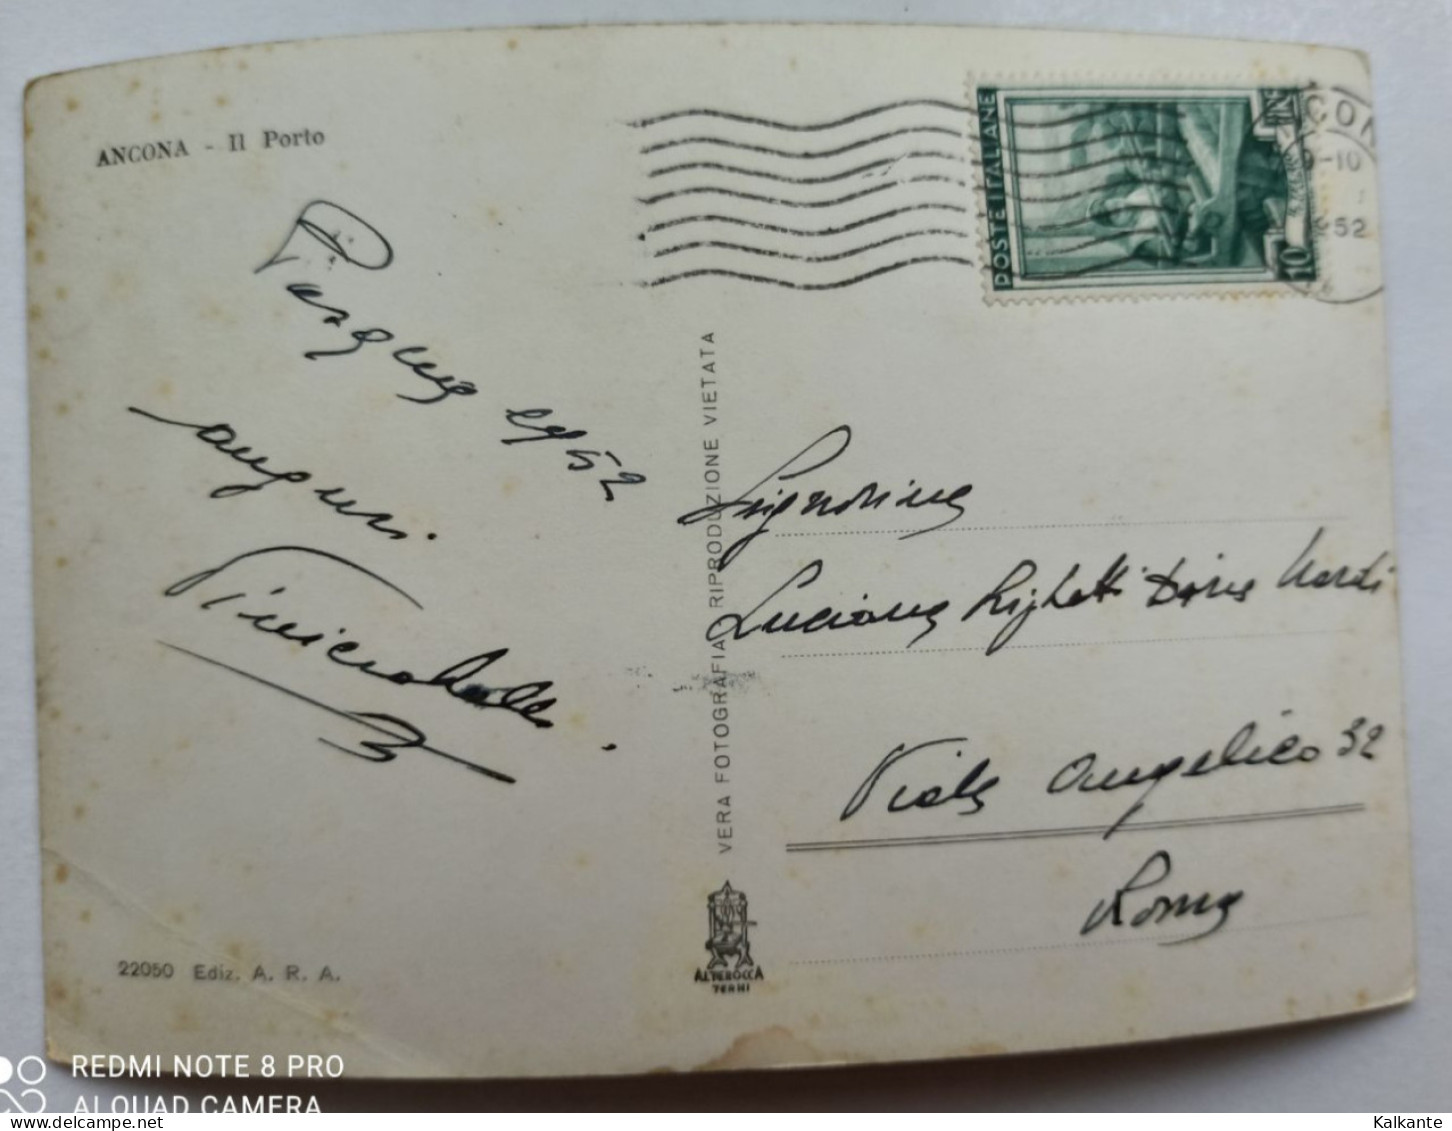 ANCONA - Il Porto
POSTE ITALIANE
10
9-10
52
Pasqua 1952
auguri.
VERA FOTOGRAFIA RIPRODUZIONE VIETATA
Signorina
Luciana Righetti Doria Nardi
Viale Angelico 32
Roma
22050 Ediz. A. R. A.
ALTEROCCA
TERNI
REDMI NOTE 8 PRO
AI QUAD CAMERA
Kalkante